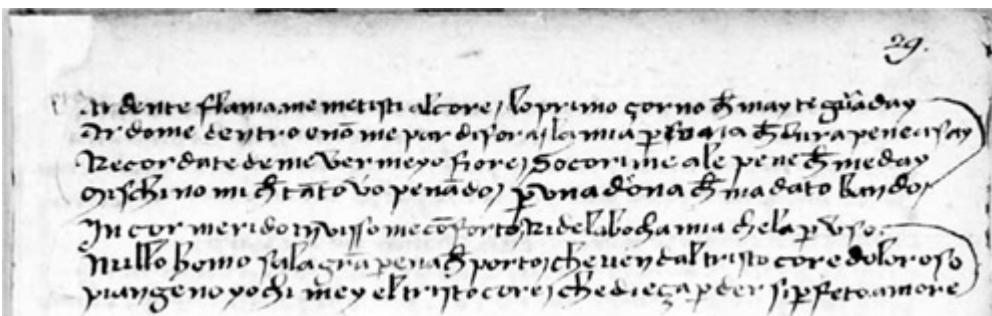 29.
Ardente flama me metisti al core / lo primo çorno ch̄ may te guᵃday
Ardome dentro e nō me par di fora / la mia ꝑsona ch̄ dura pene asay
Recordate de me vermeyo fiore / Socorime a le pene ch̄ me day
Mischino mi ch̄ tāto vo penādo / ꝑ vna dōna ch̄ ma dato bando /
In cor me rido In visso me cōforto / Ride la bocha mia che la ꝑ vso
Nullo homo sa la grā pena ch̄ porto / che ven dal tristo core doloroso
piangeno y ochi mey el tristo core / che dieça ꝑder si ꝑfeto amore